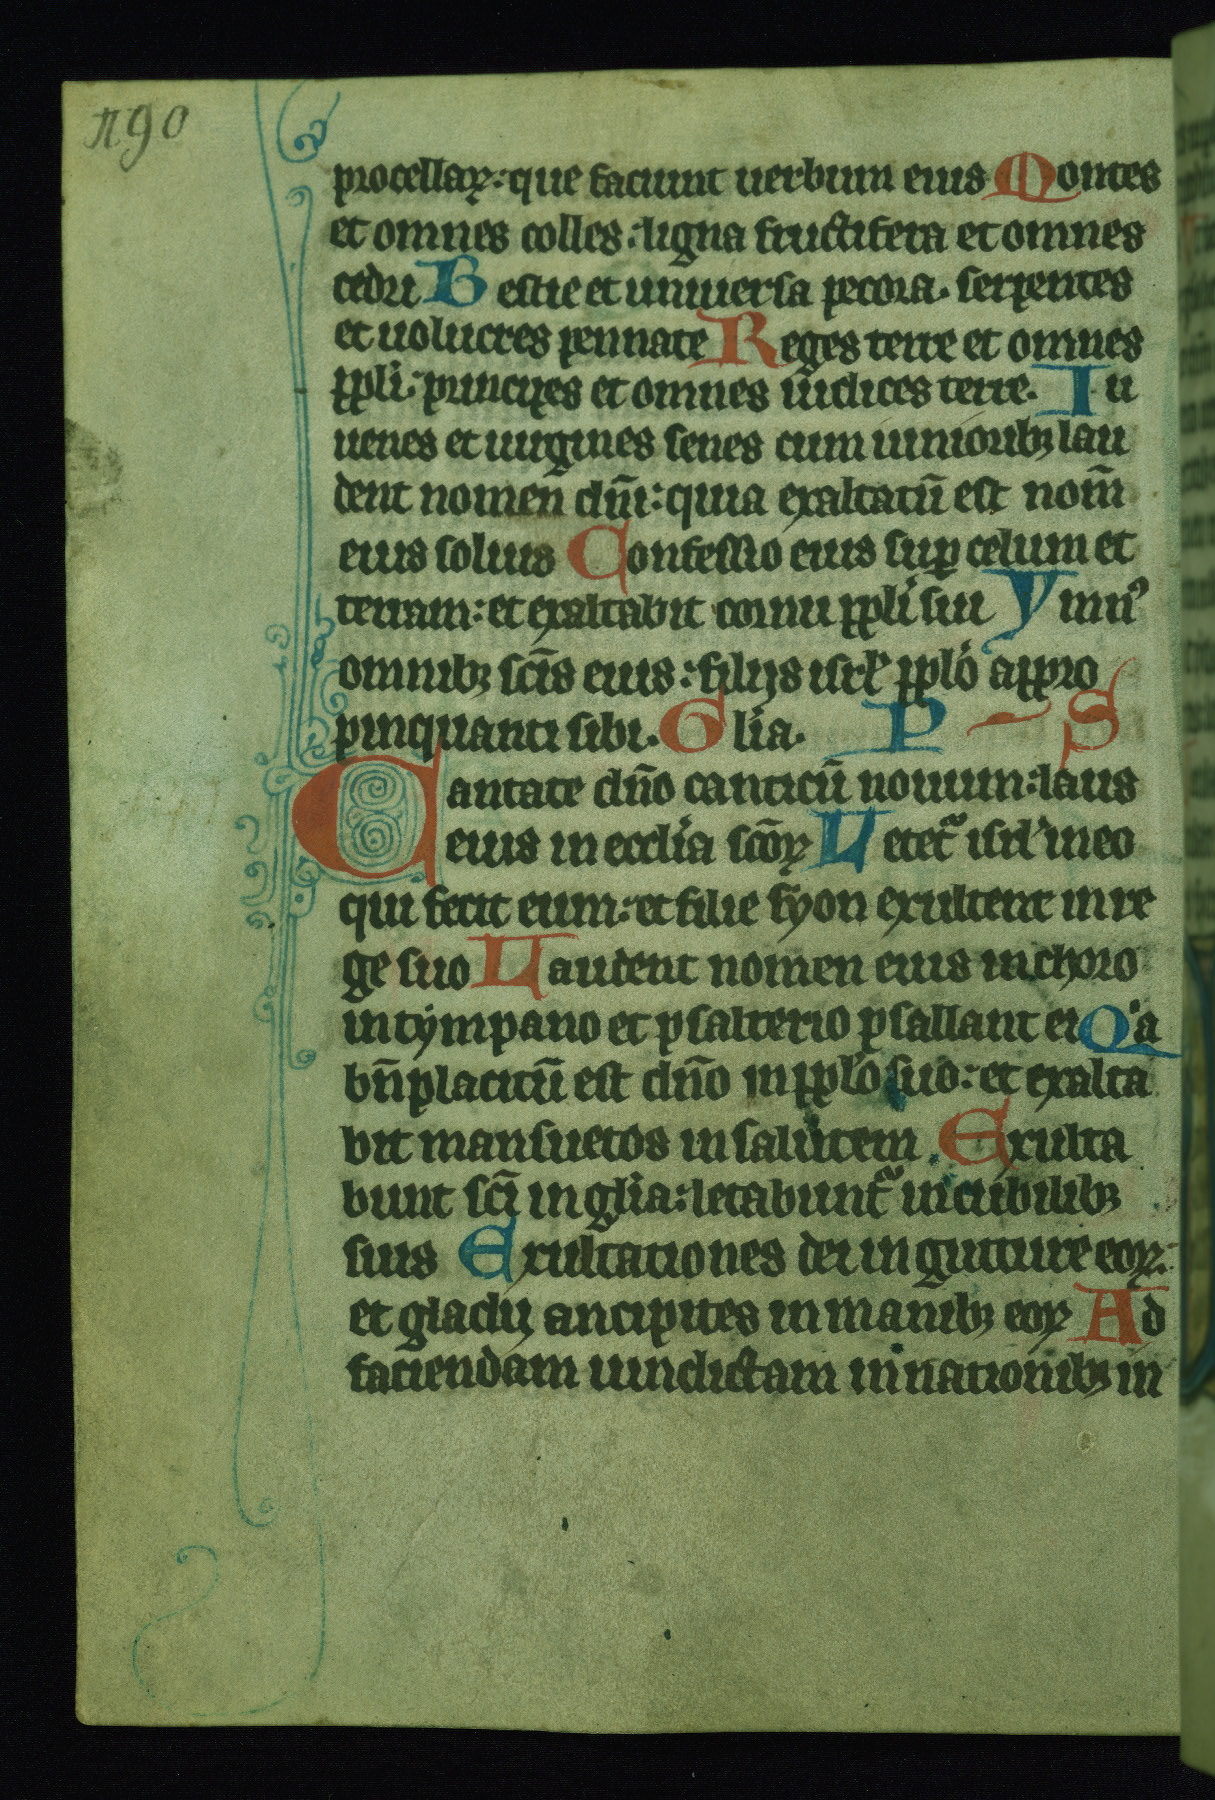 190
procellaꝝ: que faciunt uerbum eius Montes
et omnes colles: ligna fructifera et omnes
cedri Bestie et uniuersa pecora. serpentes
et uolucres pennate Reges terre et omnes
ppli: principes et omnes iudices terre. Iu
uenes et uirgines senes cum iunioribꝫ lau
dent nomen dn̄i: quia exaltatū est nom̄
eius solius Confessio eius suꝑ celum et
terram: et exaltabit cornu ppli sui Ymnꝰ
omnibꝫ sc̄is eius: filijs isrl̓ ppl̓o appro
pinquanti sibi. Gl̓ia. P S
Cantate dn̄o canticū nouum: laus
eius in eccl̓ia sc̄oꝝ Letet᷑ isrl̓ in eo
qui fecit eum: et filie syon exultent in re
ge suo Laudent nomen eius in choro
in tympano et psalterio psallant ei Qͥa
bn̄placitū est dn̄o in ppl̓o suo: et exalta
bit mansuetos in salutem. Exulta
bunt sc̄i in gl̓ia: letabunt᷑ in cubilibꝫ
suis Exultationes dei in gutture eoꝝ:
et gladij ancipites in manibꝫ eoꝝ Ad
faciendam uindictam in nationibꝫ in